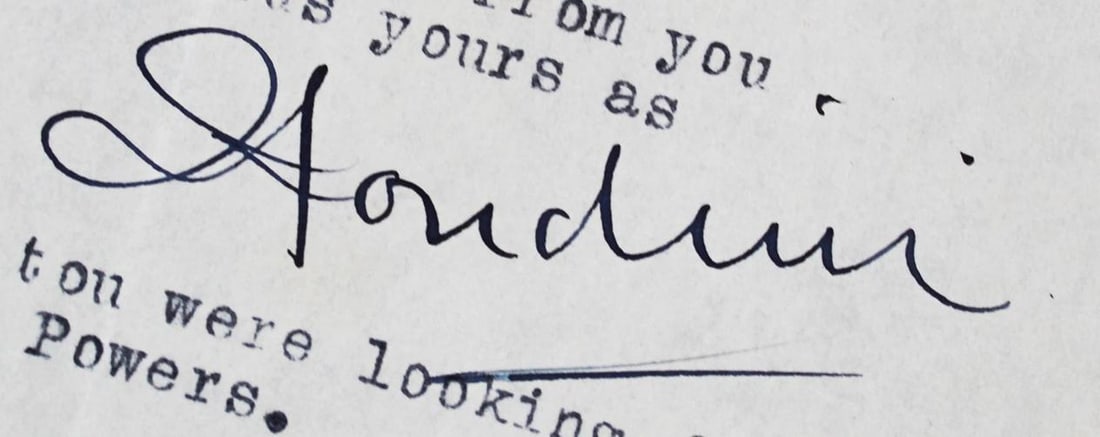 from you.
s yours as
Houdini
tou were looking
Powers.